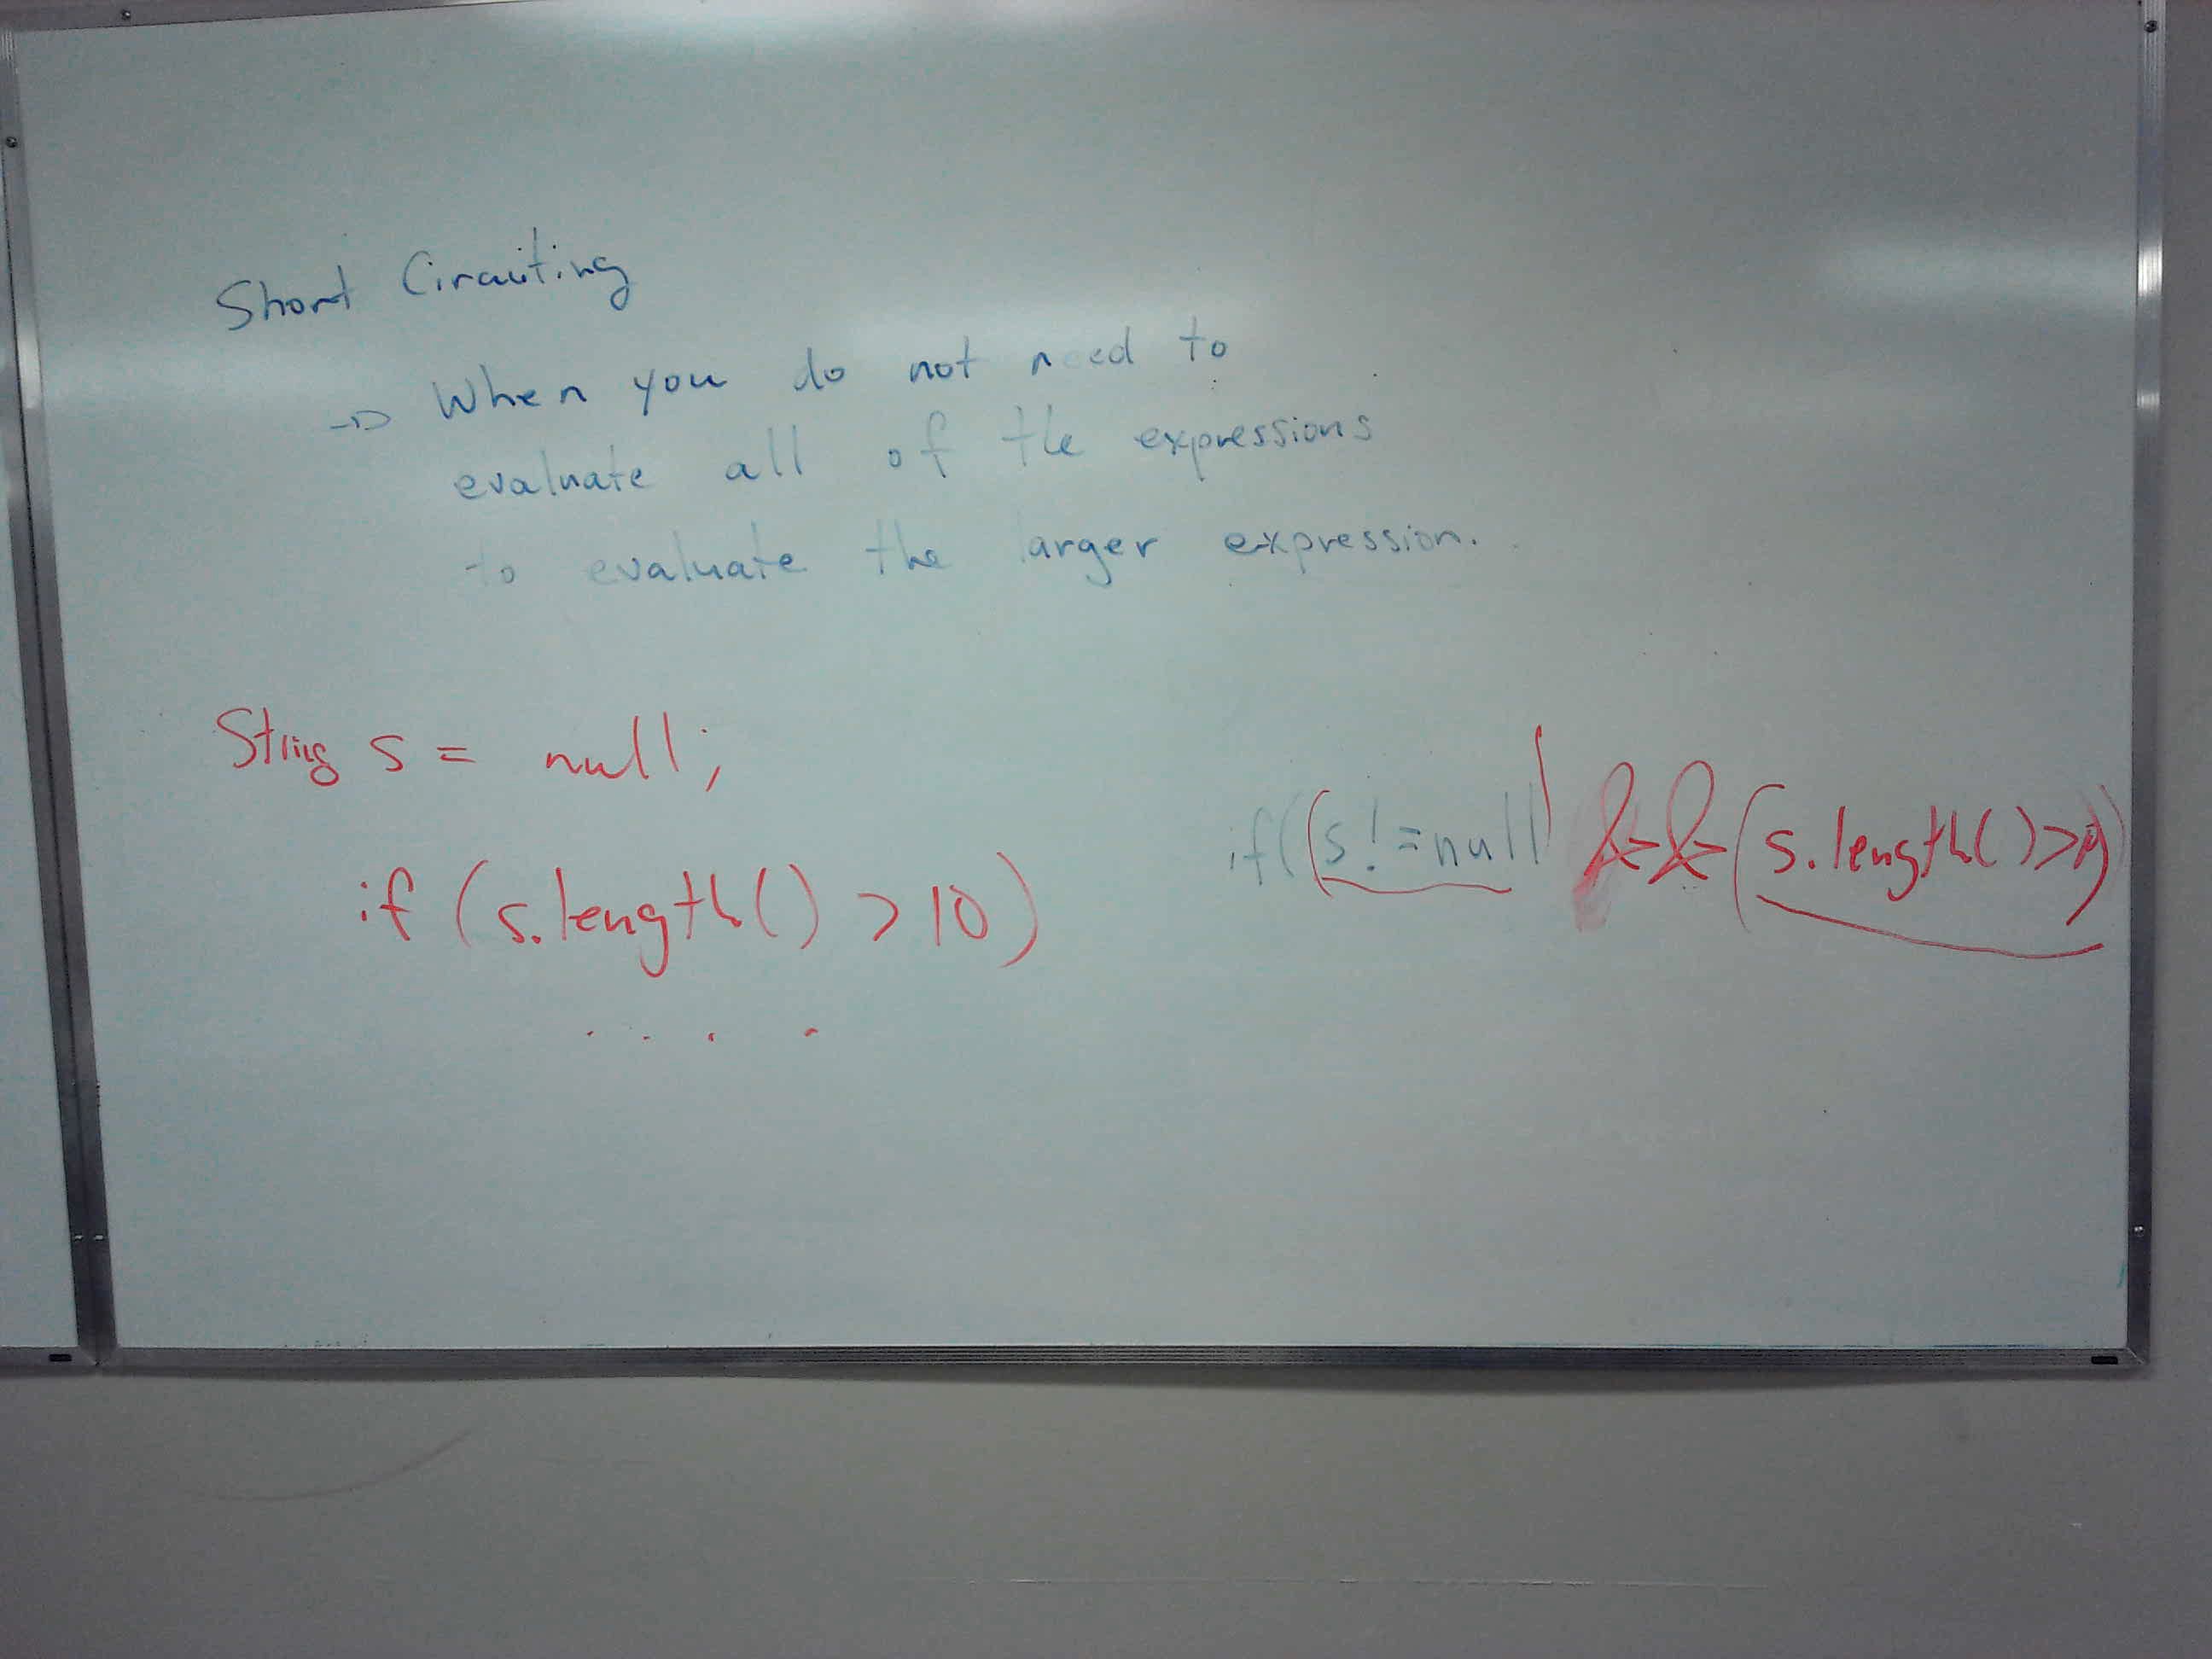 Short Circuiting
→ When you do not need to
evaluate all of the expressions
to evaluate the larger expression.
String s = null;
if (s.length() > 10)
. . . .
if((s!=null) && (s.length()>